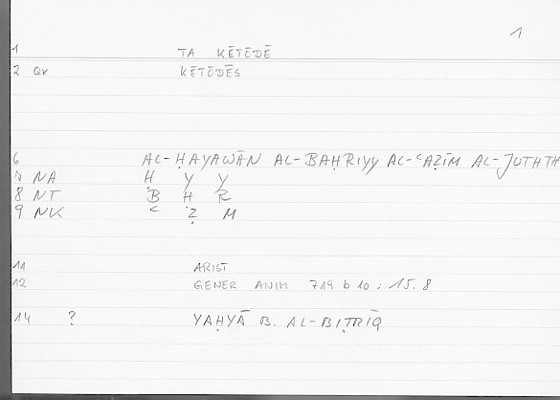 1
1 TA KĒTŌDĒ
2 Qr KĒTŌDĒS
6 AL-ḤAYAWĀN AL-BAḤRIYY AL-ʿAẒĪM AL-JUTHTH
7 NA Ḥ Y Y
8 NT B Ḥ R
9 NK ʿ Ẓ M
11 ARIST
12 GENER ANIM 719 b 10 ; 15.8
14 ? YAḤYĀ B. AL-BIṬRĪQ